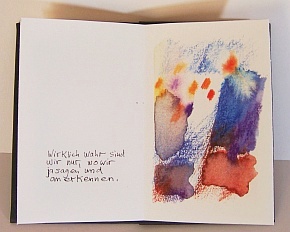 Wirklich wahr sind
wir nur, wo wir
jasagen und
anerkennen.